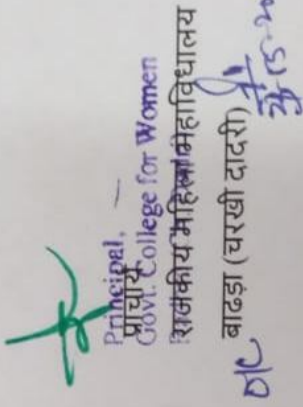 Principal,
प्राचार्य
Govt. College for Women
राजकीय महिला महाविद्यालय
बाढड़ा (चरखी दादरी)